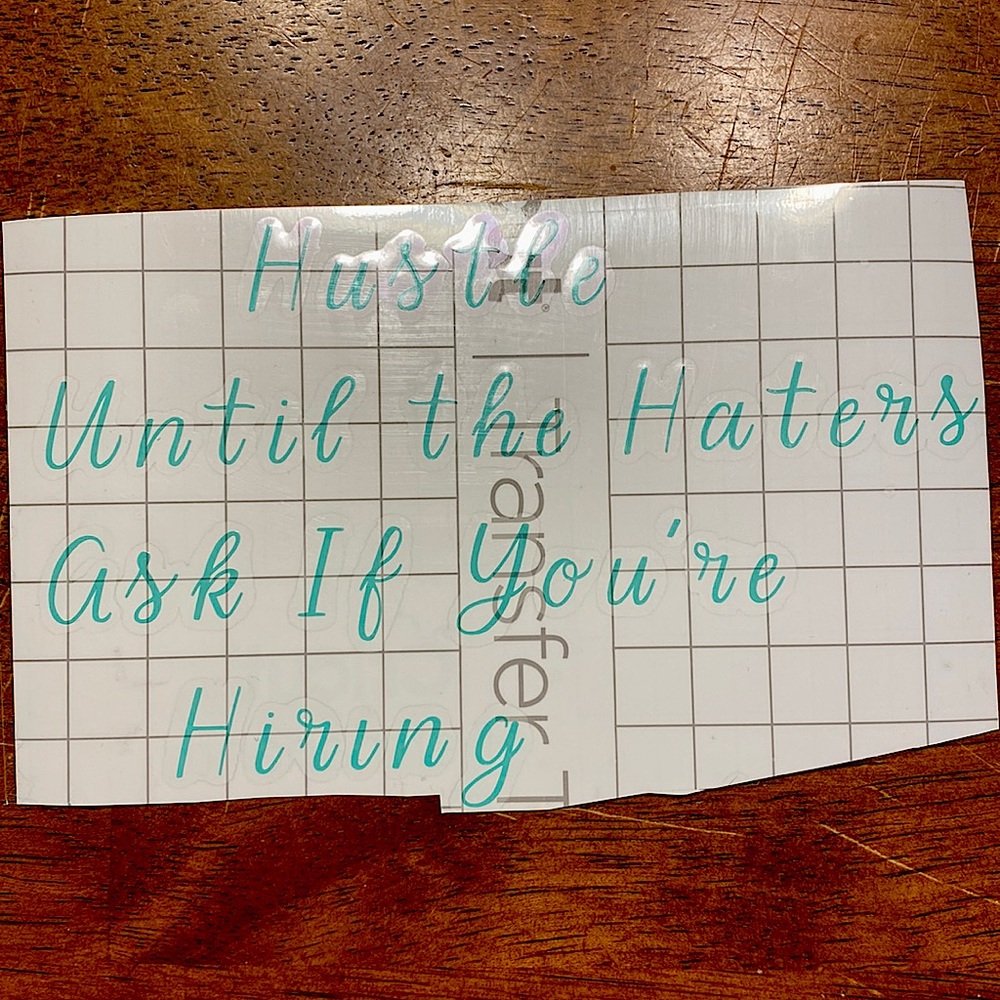 Hustle
Until the Haters
Ask If You're
Hiring
Transfer T